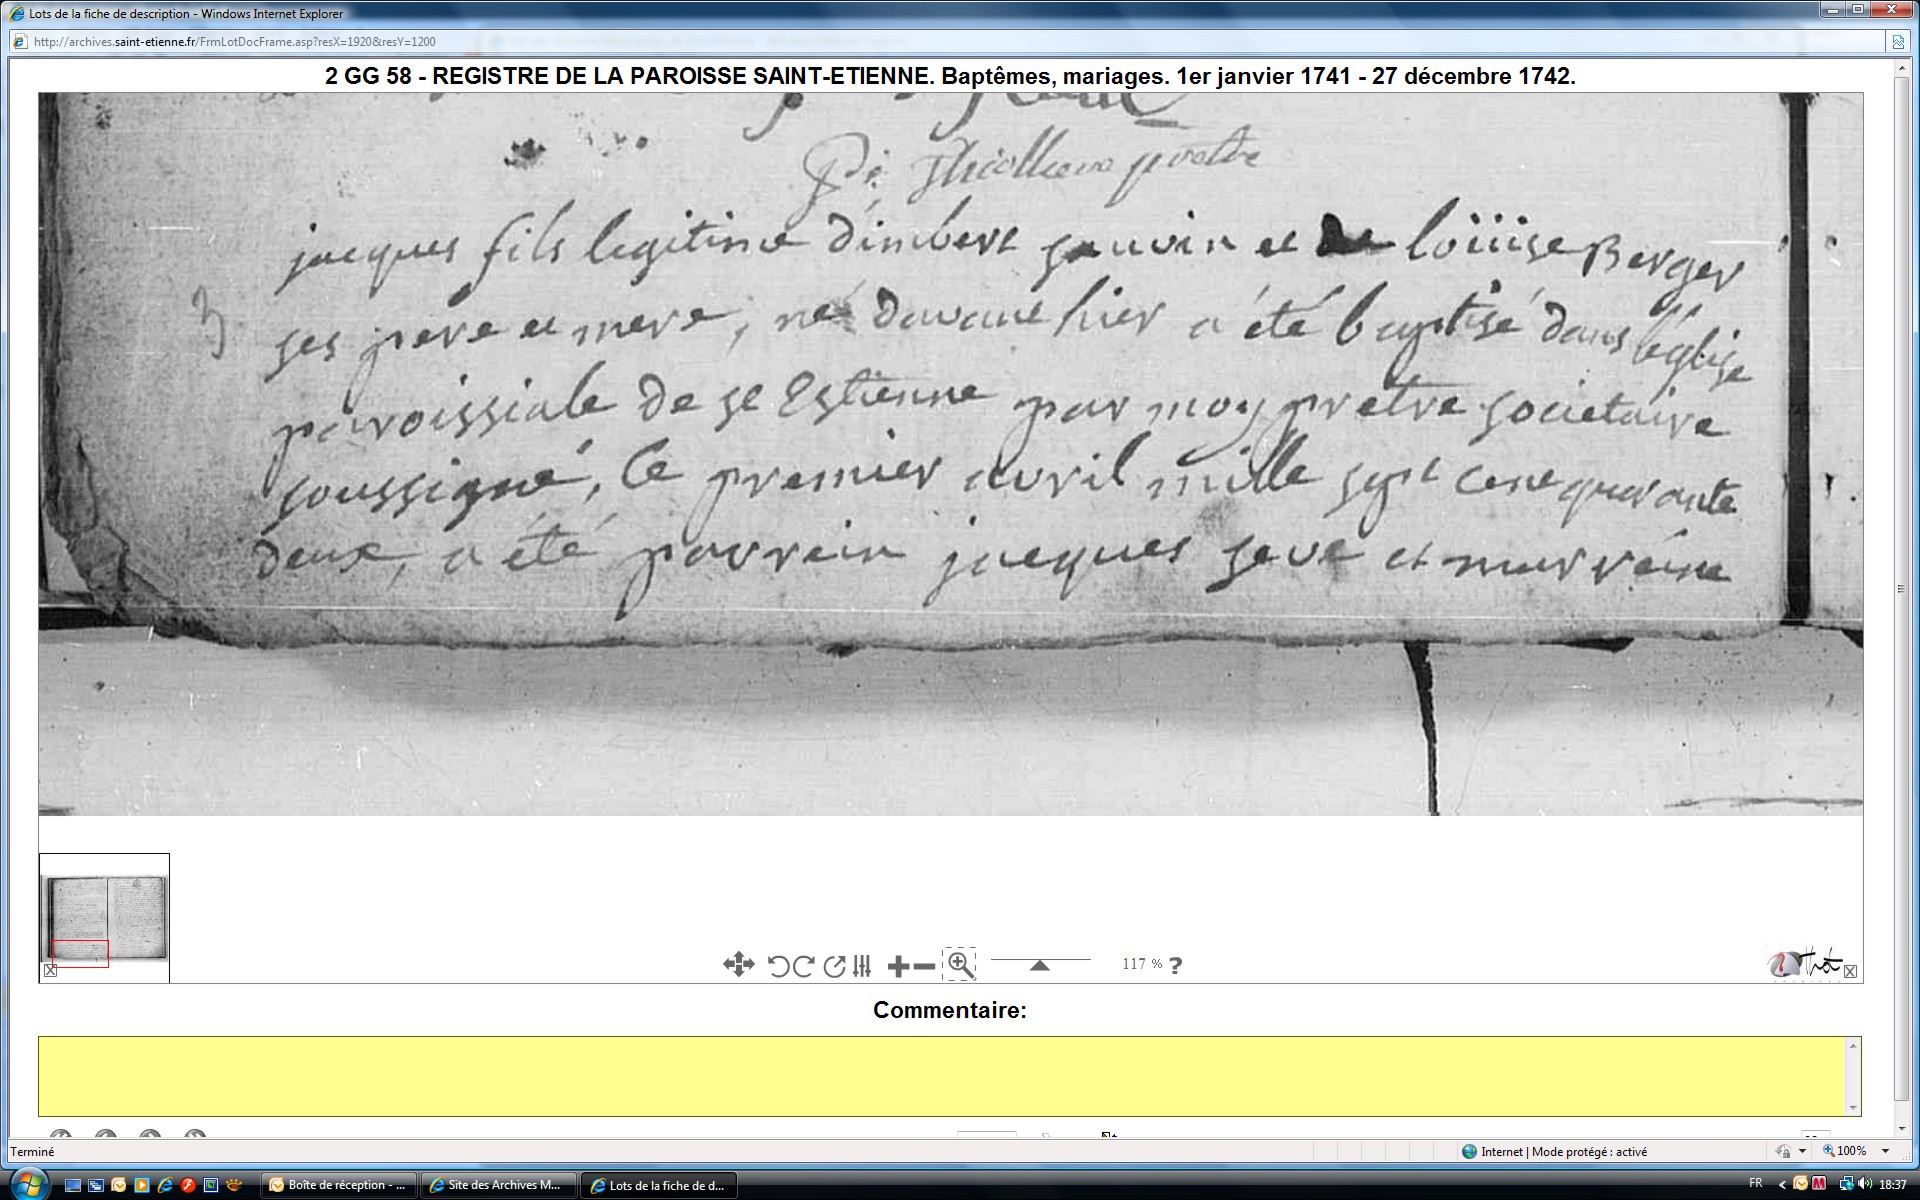 Lots de la fiche de description - Windows Internet Explorer
http://archives.saint-etienne.fr/FrmLotDocFrame.asp?resX=1920&resY=1200
2 GG 58 - REGISTRE DE LA PAROISSE SAINT-ETIENNE. Baptêmes, mariages. 1er janvier 1741 - 27 décembre 1742.
jacques fils legitime d'imbert sauvin et de loüise Berger
ses pere et mere, né davant hier a été baptisé dans l'église
paroissiale de st Estienne par moy pretre societaire
soussigné, le premier avril mille sept cent quarante
deux, a été parrein jacques seve et marreine
117 % ?
Commentaire:
Terminé
Internet | Mode protégé : activé
100%
Boîte de réception - ...
Site des Archives M...
Lots de la fiche de d...
FR
18:37